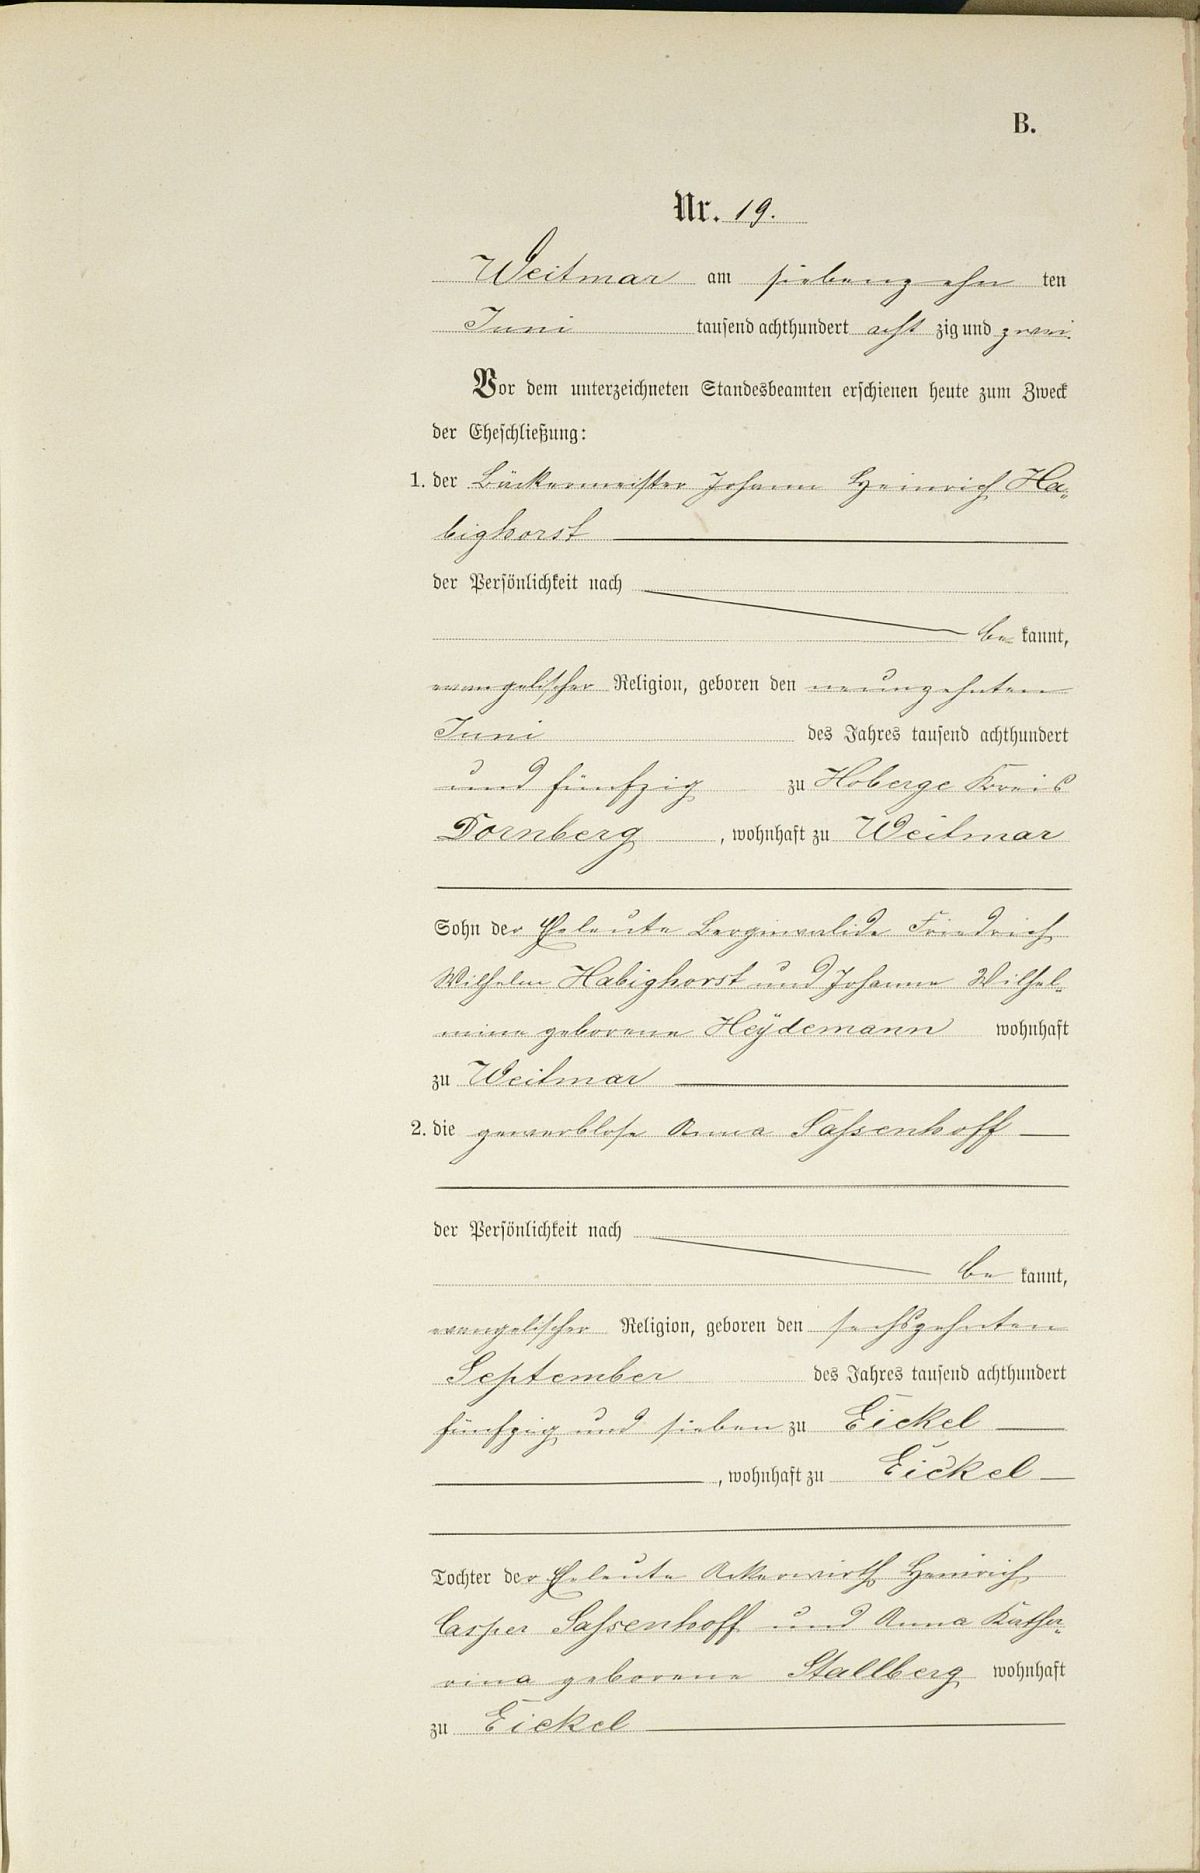 B.
Nr. 19.
Weitmar am siebenzehn ten
Juni tausend achthundert acht zig und zwei.
Vor dem unterzeichneten Standesbeamten erschienen heute zum Zweck
der Eheschließung:
1. der Bäckermeister Johann Heinrich Ha„
bighorst
der Persönlichkeit nach
be kannt,
evangelischer Religion, geboren den neunzehnten
Juni des Jahres tausend achthundert
und fünfzig zu Hoberge Kreis
Dornberg, wohnhaft zu Weitmar
Sohn der Eheleute Berginvalide Friedrich
Wilhelm Habighorst und Johanne Wilhel„
mine geborene Heÿdemann wohnhaft
zu Weitmar
2. die gewerblose Anna Saßenhoff
der Persönlichkeit nach
be kannt,
evangelischer Religion, geboren den sechszehnten
September des Jahres tausend achthundert
fünfzig und sieben zu Eickel
, wohnhaft zu Eickel
Tochter der Eheleute Ackerwirth Heinrich
Casper Saßenhoff und Anna Katha„
rina geborene Stallberg wohnhaft
zu Eickel